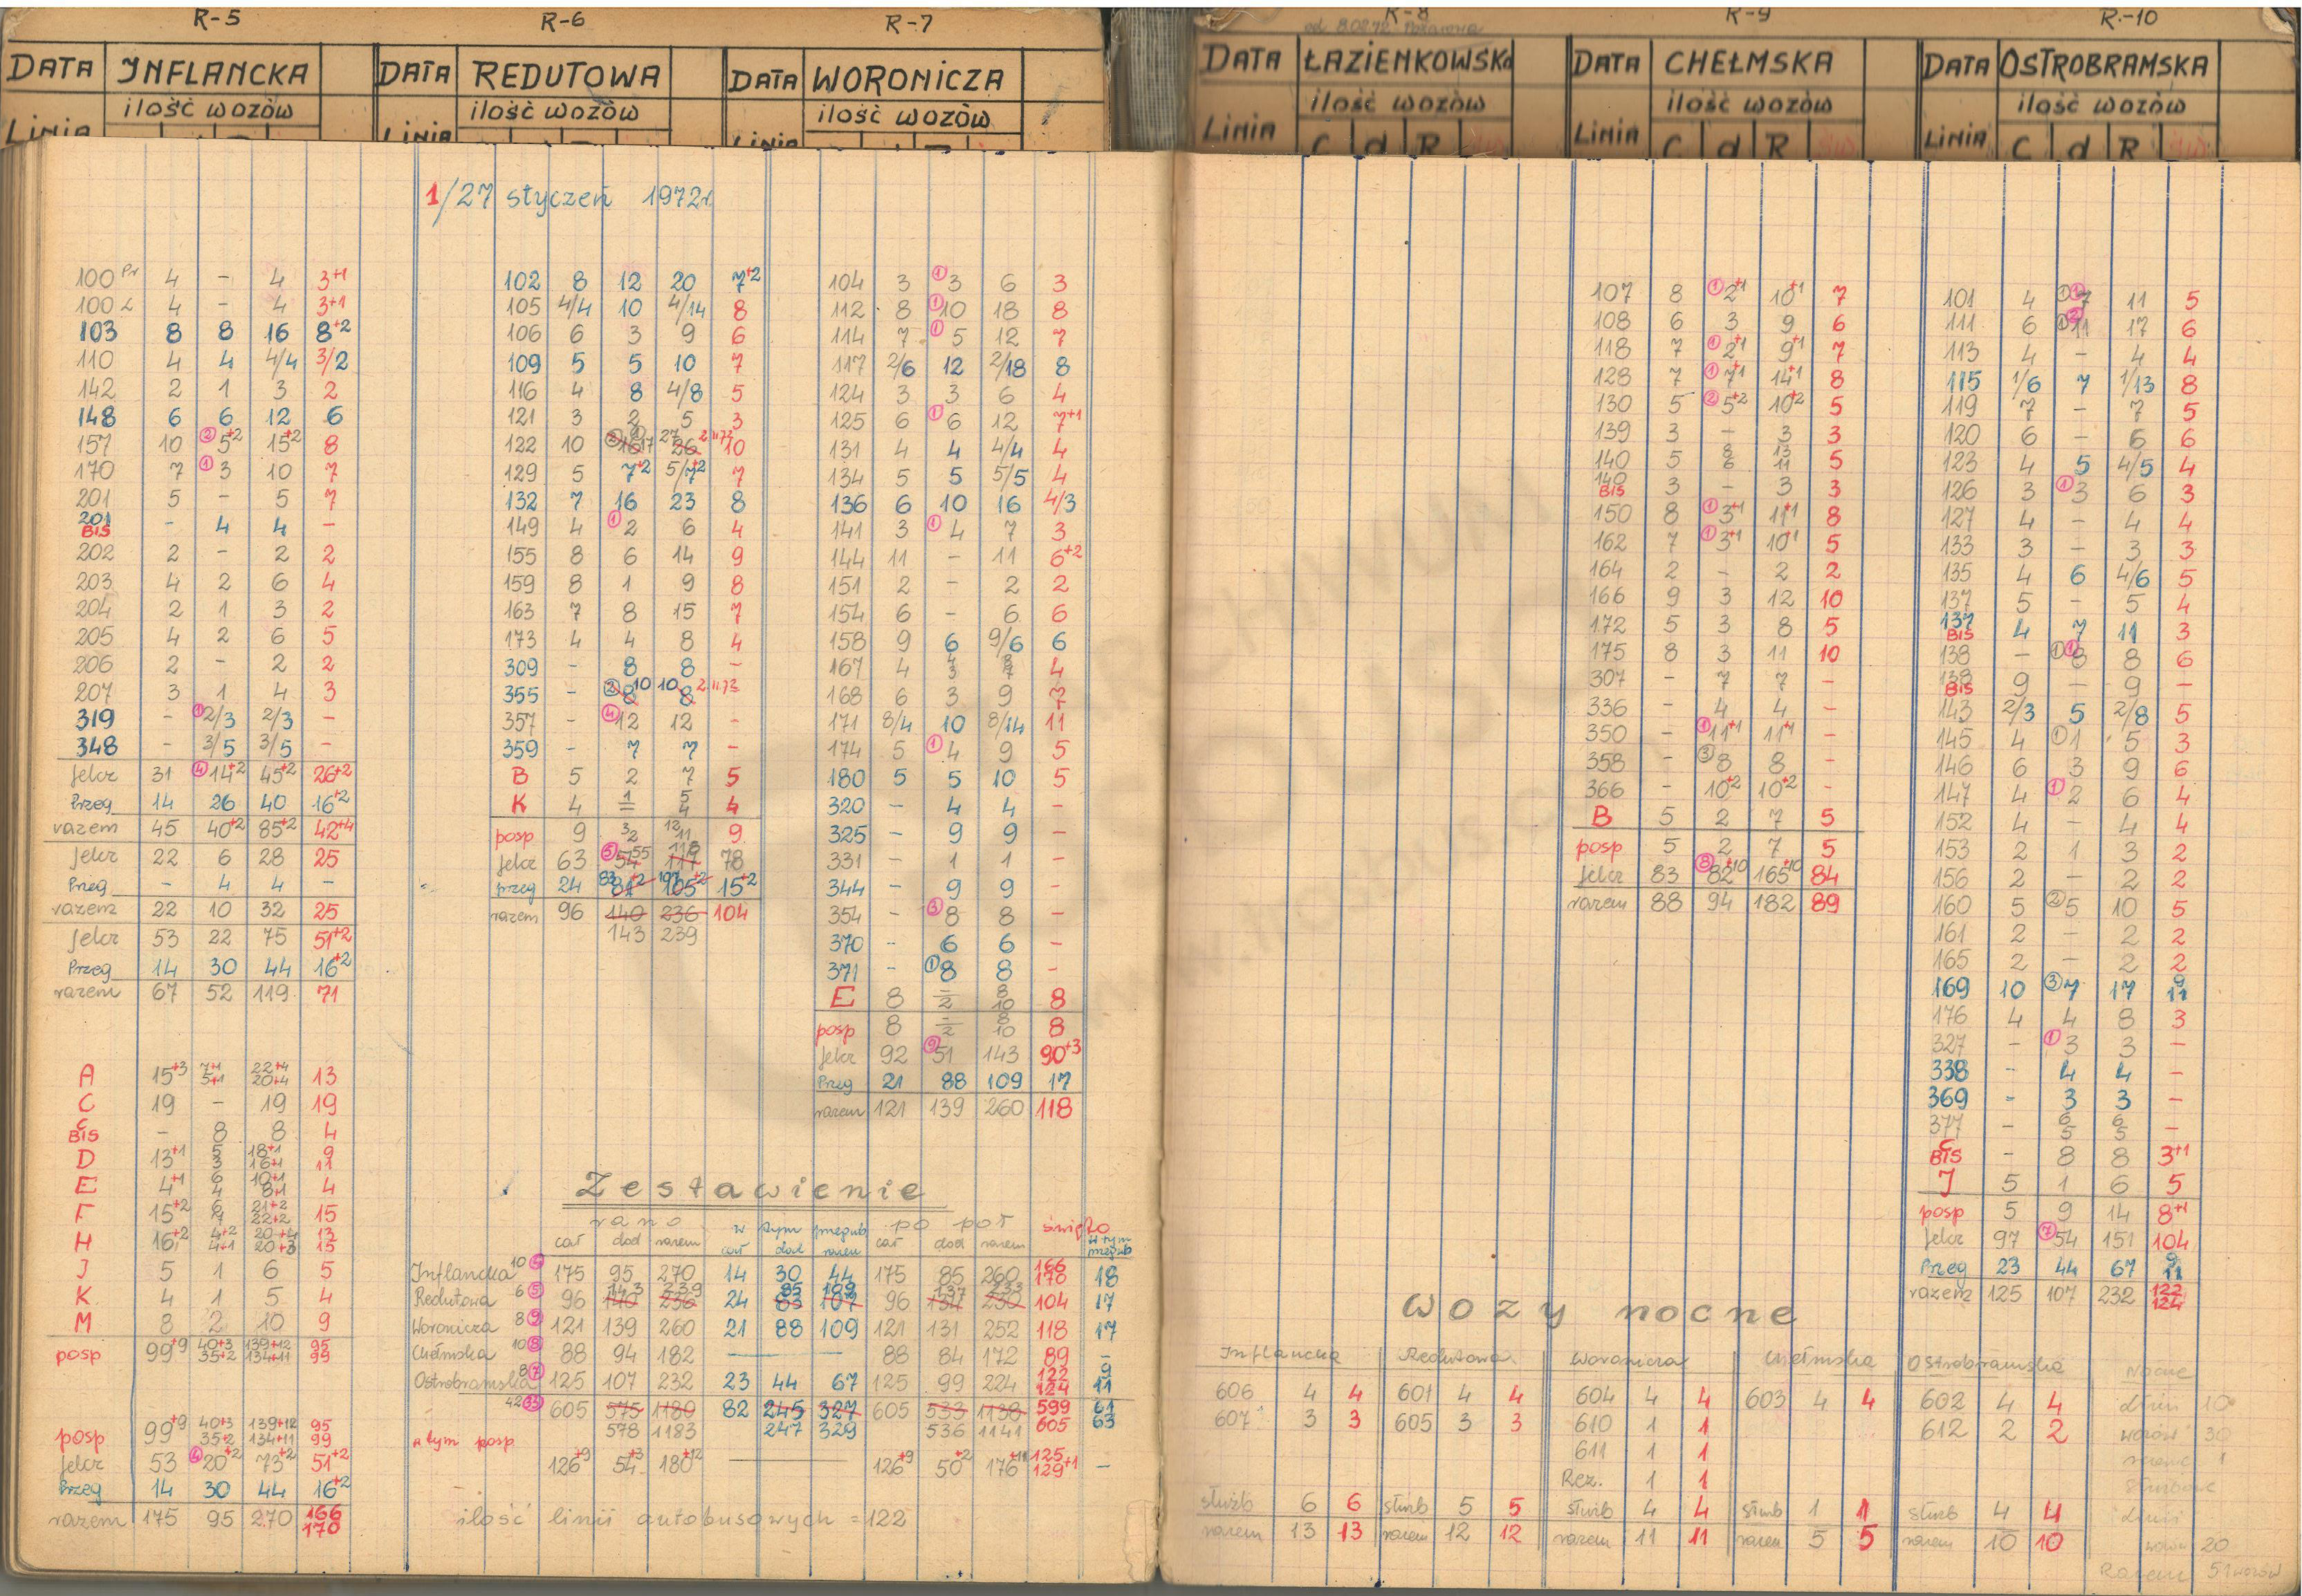 R-5
R-6
R-7
R-8
R-9
R-10
od 8.02.72 Pożarowa
DATA INFLANCKA
DATA REDUTOWA
DATA WORONICZA
DATA ŁAZIENKOWSKA
DATA CHEŁMSKA
DATA OSTROBRAMSKA
ilość wozów
ilość wozów
ilość wozów
ilość wozów
ilość wozów
ilość wozów
Linia
Linia
Linia
Linia C d R
Linia C d R
Linia C d R
1/27 styczeń 1972r.
100 Pr 4 - 4 3+1
100 Z 4 - 4 3+1
103 8 8 16 8+2
110 4 4 4/4 3/2
142 2 1 3 2
148 6 6 12 6
157 10 ② 5+2 15+2 8
170 7 ① 3 10 7
201 5 - 5 7
201 BIS - 4 4 -
202 2 - 2 2
203 4 2 6 4
204 2 1 3 2
205 4 2 6 5
206 2 - 2 2
207 3 1 4 3
319 - ① 2/3 2/3 -
348 - 3/5 3/5 -
Jelcz 31 ④ 14+2 45+2 26+2
Przeg 14 26 40 16+2
razem 45 40+2 85+2 42+4
Jelcz 22 6 28 25
Przeg - 4 4 -
razem 22 10 32 25
Jelcz 53 22 75 51+2
Przeg 14 30 44 16+2
razem 67 52 119 71
A 15+3 7+1 5+1 22+4 20+4 13
C 19 - 19 19
C BIS - 8 8 4
D 13+1 5 3 18+1 16+1 9 11
E 4+1 6 4 10+1 8+1 4
F 15+2 6 7 21+2 22+2 15
H 16+2 4+2 4+1 20+4 20+3 13 15
J 5 1 6 5
K 4 1 5 4
M 8 2 10 9
posp 99+9 40+3 35+2 139+12 134+11 95 99
posp 99+9 40+3 35+2 139+12 134+11 95 99
Jelcz 53 ④ 20+2 73+2 51+2
Przeg 14 30 44 16+2
razem 175 95 270 166 170
102 8 12 20 7+2
105 4/4 10 4/14 8
106 6 3 9 6
109 5 5 10 7
116 4 8 4/8 5
121 3 2 5 3
122 10 16 17 26 27 2.II.72 10
129 5 7+2 5/7+2 7
132 7 16 23 8
149 4 ① 2 6 4
155 8 6 14 9
159 8 1 9 8
163 7 8 15 7
173 4 4 8 4
309 - 8 8 -
355 - ② 8 10 8 10 2.II.72
357 - ④ 12 12 -
359 - 7 7 -
B 5 2 7 5
K 4 1 5 4 4
posp 9 3 2 12 11 9
Jelcz 63 ⑤ 54 55 117 118 78
przeg 24 83 81+2 107 105+2 15+2
razem 96 140 236 104
143 239
104 3 ① 3 6 3
112 8 ① 10 18 8
114 7 ① 5 12 7
117 2/6 12 2/18 8
124 3 3 6 4
125 6 ① 6 12 7+1
131 4 4 4/4 4
134 5 5 5/5 4
136 6 10 16 4/3
141 3 ① 4 7 3
144 11 - 11 6+2
151 2 - 2 2
154 6 - 6 6
158 9 6 9/6 6
167 4 4 3 8 7 4
168 6 3 9 7
171 8/4 10 8/14 11
174 5 ① 4 9 5
180 5 5 10 5
320 - 4 4 -
325 - 9 9 -
331 - 1 1 -
344 - 9 9 -
354 - ③ 8 8 -
370 - 6 6 -
371 - ① 8 8 -
E 8 - 2 8 10 8
posp 8 - 2 8 10 8
Jelcz 92 ⑨ 51 143 90+3
Przeg 21 88 109 17
razem 121 139 260 118
Zestawienie
rano w tym przegub po poł święto
cał dod razem cał dod razem cał dod razem w tym przegub
Inflancka 10 ④ 175 95 270 14 30 44 175 85 260 166 170 18
Redutowa 6 ⑤ 96 140 143 236 239 24 83 85 107 109 96 134 137 230 233 104 17
Woronicza 8 ⑨ 121 139 260 21 88 109 121 131 252 118 17
Chełmska 10 ⑧ 88 94 182 — 88 84 172 89 -
Ostrobramska 8 ⑦ 125 107 232 23 44 67 125 99 224 122 124 9 11
42 ㉝ 605 575 1180 82 245 327 605 533 1138 599 61
578 1183 247 329 536 1141 605 63
w tym posp 126+9 54+3 180+12 — 126+9 50+2 176+11 125 129+1 -
ilość linii autobusowych = 122
107 8 ① 2+1 10+1 7
108 6 3 9 6
118 7 ① 2+1 9+1 7
128 7 ① 7+1 14+1 8
130 5 ② 5+2 10+2 5
139 3 - 3 3
140 5 8 6 13 11 5
140 BIS 3 - 3 3
150 8 ① 3+1 11+1 8
162 7 ① 3+1 10+1 5
164 2 - 2 2
166 9 3 12 10
172 5 3 8 5
175 8 3 11 10
307 - 7 7 -
336 - 4 4 -
350 - ① 11+1 11+1 -
358 - ③ 8 8 -
366 - 10+2 10+2 -
B 5 2 7 5
posp 5 2 7 5
Jelcz 83 ⑧ 82+10 165+10 84
razem 88 94 182 89
101 4 ① ① 7 11 5
111 6 ① ② 11 17 6
113 4 - 4 4
115 1/6 7 1/13 8
119 7 - 7 5
120 6 - 6 6
123 4 5 4/5 4
126 3 ① 3 6 3
127 4 - 4 4
133 3 - 3 3
135 4 6 4/6 5
137 5 - 5 4
137 BIS 4 7 11 3
138 - ① ① 8 8 6
138 BIS 9 - 9 -
143 2/3 5 2/8 5
145 4 ① 1 5 3
146 6 3 9 6
147 4 ① 2 6 4
152 4 - 4 4
153 2 1 3 2
156 2 - 2 2
160 5 ② 5 10 5
161 2 - 2 2
165 2 - 2 2
169 10 ③ 7 17 9 11
176 4 4 8 3
327 - ① 3 3 -
338 - 4 4 -
369 - 3 3 -
377 - 6 5 6 5 -
C BIS - 8 8 3+1
J 5 1 6 5
posp 5 9 14 8+1
Jelcz 97 ⑦ 54 151 104
Przeg 23 44 67 9 11
razem 125 107 232 122 124
wozy nocne
Inflancka Redutowa Woronicza Chełmska Ostrobramska Nocne
606 4 4 601 4 4 604 4 4 603 4 4 602 4 4 linii 10
607 3 3 605 3 3 610 1 1 612 2 2 wozów 30
611 1 1 rezerwa 1
Rez. 1 1 Służbowe
służb 6 6 służb 5 5 służb 4 4 służb 1 1 służb 4 4 linii
razem 13 13 razem 12 12 razem 11 11 razem 5 5 razem 10 10 wozów 20
Razem 51 wozów